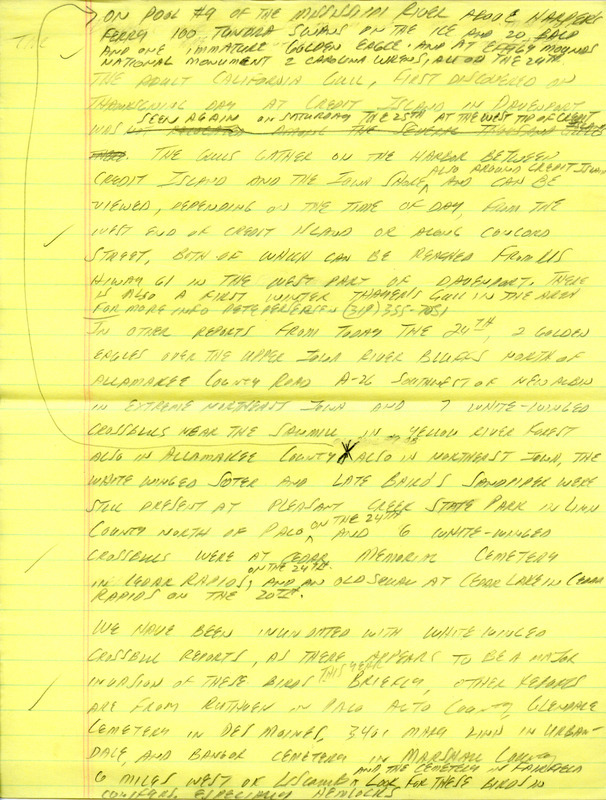 ON POOL #9 OF THE MISSISSIPPI RIVER ABOVE HARPERS
FERRY 100 TUNDRA SWANS ON THE ICE AND 20 BALD
AND ONE IMMATURE GOLDEN EAGLE. AND AT EFFIGY MOUNDS
NATIONAL MONUMENT 2 CAROLINA WRENS, ALL ON THE 24TH.
THE
THE ADULT CALIFORNIA GULL, FIRST DISCOVERED ON
THANKSGIVING DAY AT CREDIT ISLAND IN DAVENPORT
SEEN AGAIN ON SATURDAY THE 25TH AT THE WEST TIP OF CREDIT
WAS NOT RELOCATED AMONG THE SEVERAL THOUSAND GULLS
THERE. THE GULLS GATHER ON THE HARBOR BETWEEN
ALSO AROUND CREDIT ISLAND
CREDIT ISLAND AND THE IOWA SHORE AND CAN BE
VIEWED, DEPENDING ON THE TIME OF DAY, FROM THE
WEST END OF CREDIT ISLAND OR ALONG CONCORD
STREET, BOTH OF WHICH CAN BE REACHED FROM US
HIWAY 61 IN THE WEST PART OF DAVENPORT. THERE
IS ALSO A FIRST WINTER THAYER'S GULL IN THE AREA
FOR MORE INFO PETE PETERSEN (319) 355-7051
IN OTHER REPORTS FROM TODAY THE 24TH, 2 GOLDEN
EAGLES OVER THE UPPER IOWA RIVER BLUFFS NORTH OF
ALLAMAKEE COUNTY ROAD A-26 SOUTHWEST OF NEW ALBIN
IN EXTREME NORTHEAST IOWA AND 7 WHITE-WINGED
CROSSBILLS NEAR THE SAWMILL IN YELLOW RIVER FOREST
ALSO IN ALLAMAKEE COUNTY X ALSO IN NORTHEAST IOWA, THE
WHITE WINGED SCOTER AND LATE BAIRD'S SANDPIPER WERE
STILL PRESENT AT PLEASANT CREEK STATE PARK IN LINN
ON THE 24TH
COUNTY NORTH OF PALO AND 6 WHITE-WINGED
CROSSBILLS WERE AT CEDAR MEMORIAL CEMETERY
ON THE 24TH.
IN CEDAR RAPIDS, AND AN OLDSQUAW AT CEDAR LAKE IN CEDAR
RAPIDS ON THE 20TH.
WE HAVE BEEN INUNDATED WITH WHITE WINGED
CROSSBILL REPORTS, AS THERE APPEARS TO BE A MAJOR
THIS YEAR
INVASION OF THESE BIRDS BRIEFLY, OTHER REPORTS
ARE FROM RUTHVEN IN PALO ALTO COUNTY, GLENDALE
CEMETERY IN DES MOINES, 3401 MARY LINN IN URBAN-
DALE, AND BANGOR CEMETERY IN MARSHALL COUNTY
AND THE CEMETERY IN FAIRFIELD
6 MILES WEST OF LISCOMB. LOOK FOR THESE BIRDS IN
CONIFERS, ESPECIALLY HEMLOCKS